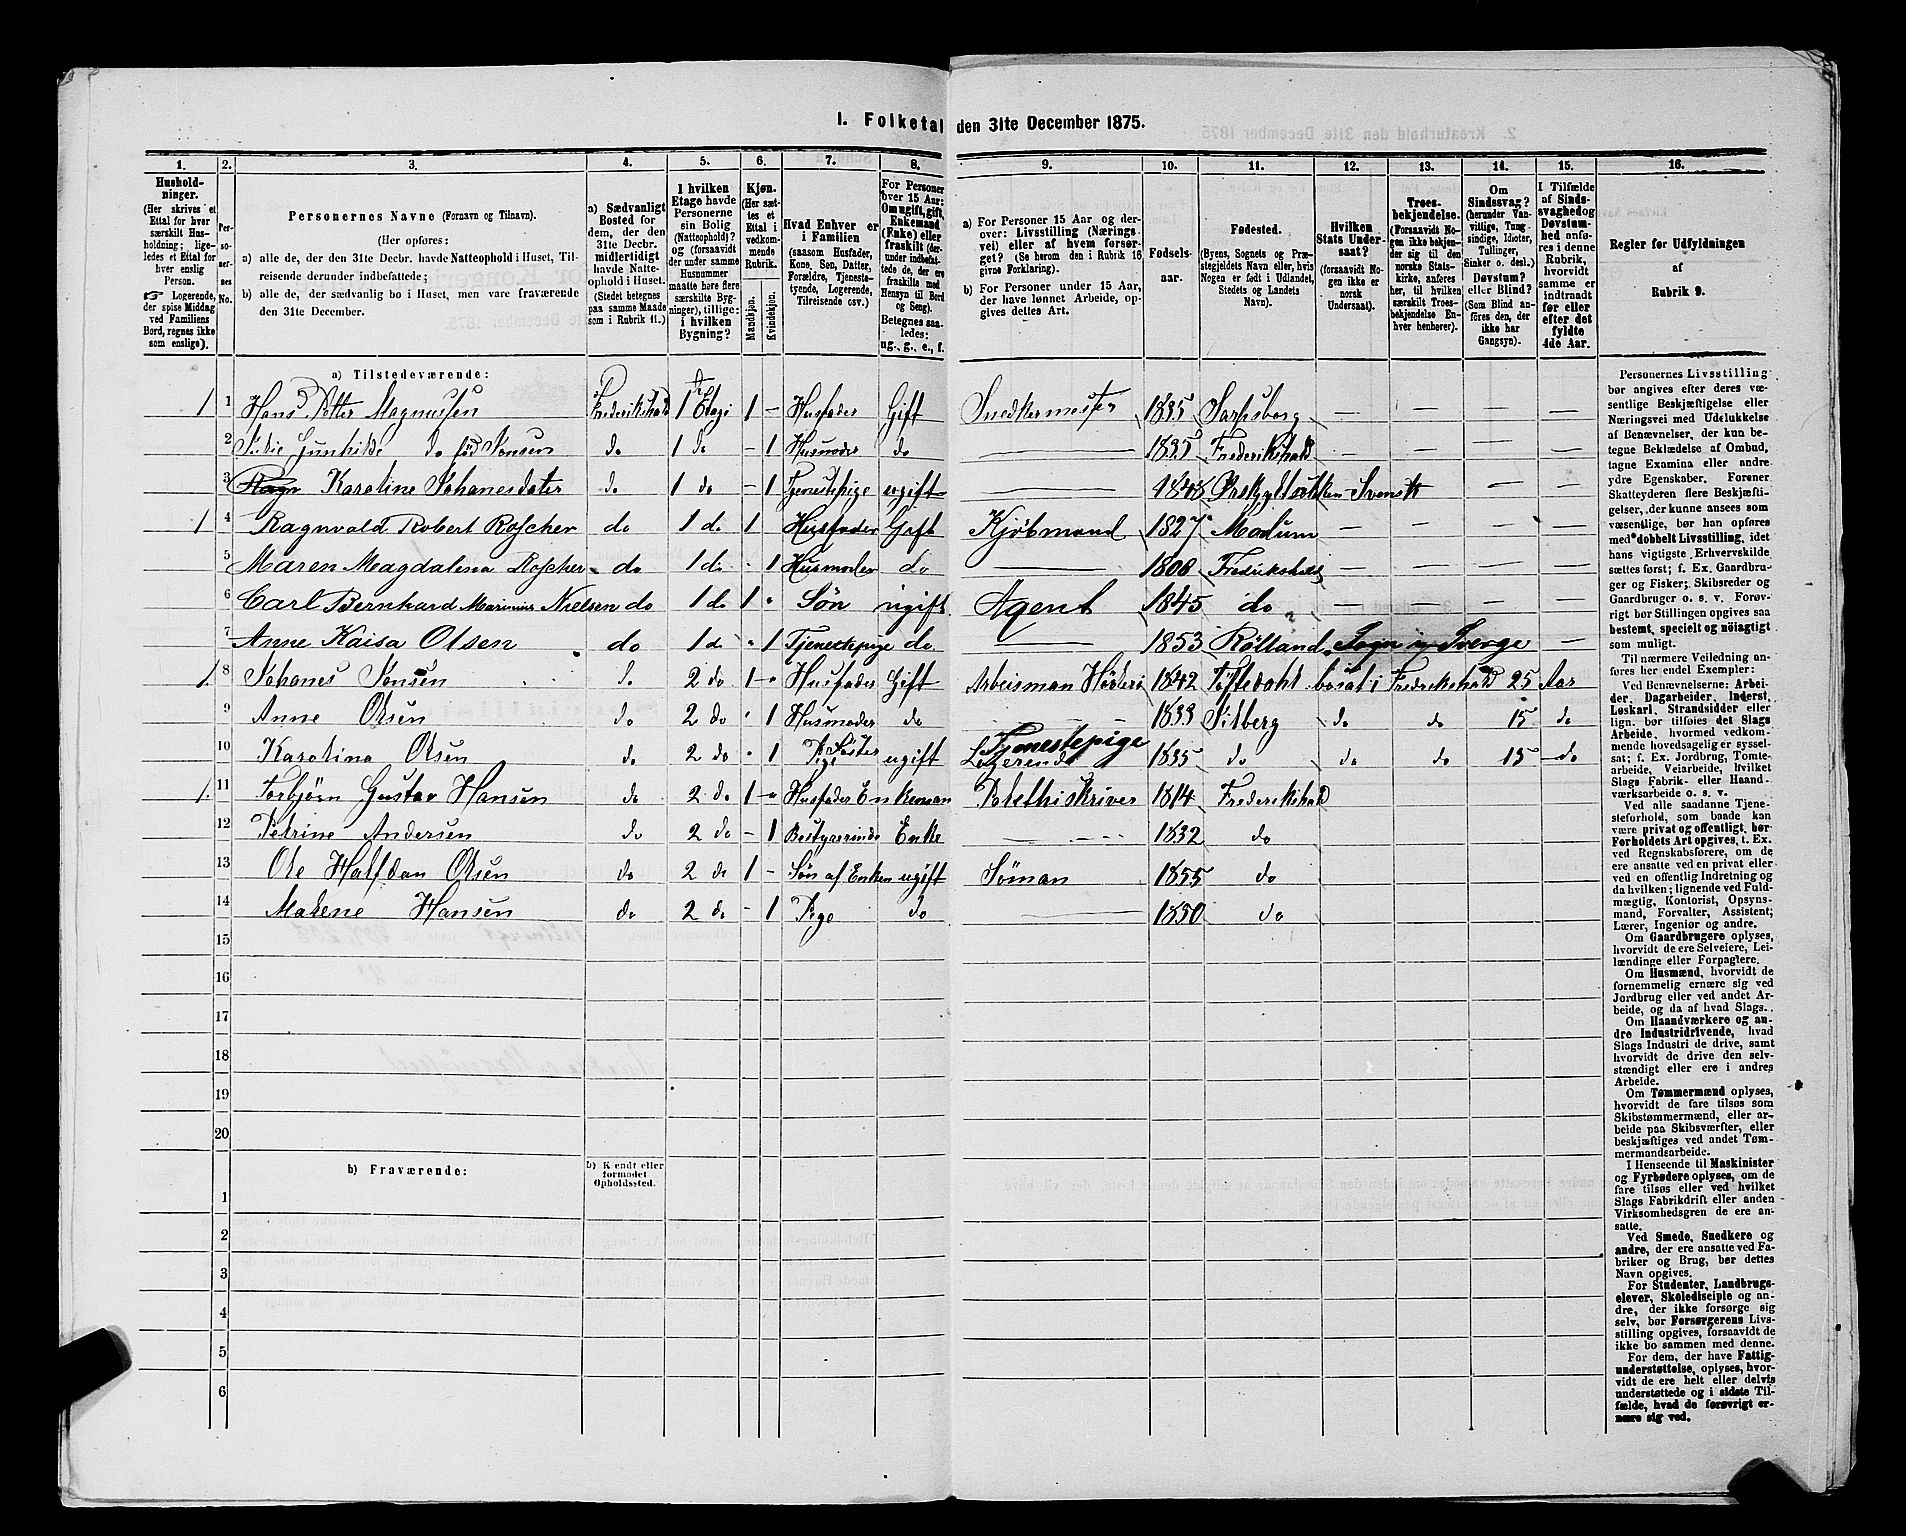 1. Folketal den 31te December 1875.
1. 2. 3. 4. 5. 6. 7. 8. 9. 10. 11. 12. 13. 14. 15. 16.
Husholdninger.
(Her skrives et Ettal for hver særskilt Husholdning; ligeledes et Ettal for hver enslig Person.
☞ Logerende, der spise Middag ved Familiens Bord, regnes ikke som enslige).
Personernes No.
Personernes Navne (Fornavn og Tilnavn).
(Her opføres:
a) alle de, der den 31te Decbr. havde Natteophold i Huset, Tilreisende derunder indbefattede;
b) alle de, der sædvanlig bo i Huset, men vare fraværende den 31te December.
a) Sædvanligt Bosted for dem, der den 31te Decbr. midlertidigt havde Natteophold i Huset. (Stedet betegnes paa samme Maade som i Rubrik 11.)
I hvilken Etage havde Personerne sin Bolig (Natteophold)? og (forsaavidt der under samme Husnummer maatte høre flere særskilte Bygninger), tillige: i hvilken Bygning?
Kjøn. (Her sættes et Ettal i vedkommende Rubrik.)
Mandskjøn. Kvindekjøn.
Hvad Enhver er i Familien (saasom Husfader, Kone, Søn, Datter, Forældre, Tjenestetyende, Logerende, Tilreisende osv.)
For Personer over 15 Aar: Om ugift, gift, Enkemand (Enke) eller fraskilt (derunder indbefattede de, der ere fraskilte med Hensyn til Bord og Seng). Betegnes saaledes: ug., g., e., f.
a) For Personer 15 Aar og derover: Livsstilling (Næringsvei) eller af hvem forsørget? (Se herom den i Rubrik 16 givne Forklaring).
b) For Personer under 15 Aar, der have lønnet Arbeide, opgives dettes Art.
Fødselsaar.
Fødested.
(Byens, Sognets og Præstegjeldets Navn eller, hvis Nogen er født i Udlandet, Stedets og Landets Navn).
Hvilken Stats Undersaat? (forsaavidt Nogen ikke er norsk Undersaat).
Troesbekjendelse. (Forsaavidt Nogen ikke bekjender sig til den norske Statskirke, anføres her, til hvilken særskilt Troesbekjendelse Enhver henhører).
Om Sindssvag? (herunder Vanvittige, Idioter, Tullinger, Sinker o. desl.). Døvstum? eller Blind? (Som Blind anføres den, der ikke har Gangsyn).
I Tilfælde af Sindssvaghed og Døvstumhed anføres i denne Rubrik, hvorvidt samme er indtraadt før eller efter det fyldte 4de Aar.
Regler for Udfyldningen af Rubrik 9.
a) Tilstedeværende:
1 1 Hans Petter Magnussen Frederikshald 1 Etagi 1 – Husfader Gift Snedkermester 1835 Sarpsborg – – – –
2 Gunhilde do fød Jonsen do 1 do – 1 Husmoder do 1835 Frederikshald – – – –
3 Karoline Johanesdater do 1 do – 1 Tjenestepige ugift 1848 Svensk – – –
1 4 Ragnvald Robert Roscher do 1 do 1 Husfader Gift Kjøbmand 1827 Modum – – – –
5 Maren Magdalena Roscher do 1 do 1 Husmoder do 1808 Fredrikshald – – – –
6 Carl Bernhard Marinius Nielsen do 1 do 1 Søn ugift Agent 1845 do – – – –
7 Anne Kaisa Olsen do 1 do 1 Tjenestepige do 1853 Rølland Sogn i Sverge –
1 8 Johanes Jonsen do 2 do 1 Husfader Gift Arbeisman 1842 Töftedahl bosat i Fredrikshald 25 Aar
9 Anne Olsen do 2 do 1 Husmoder do 1833 Silberg do do 15 do
10 Karolina Olsen do 2 do 1 Søster Pige ugift Tjenestepige Logerende 1835 do do do 15 do
1 11 Torbjørn Gustav Hansen do 2 do 1 – Husfader Enkeman 1814 Frederikshald
12 Petrine Andersen do 2 do – 1 Bestyrerinde Enke 1832 do
13 Ole Halfdan Olsen do 2 do 1 – Søn af Enken ugift Søman 1855 do
14 Malene Hansen do 2 do – 1 Pige do 1850 do
15
16
17
18
19
20
b) Fraværende: b) Kjendt eller formodet Opholdssted.
1
2
3
4
5
6
Personernes Livsstilling bør angives efter deres væsentlige Beskjæftigelse eller Næringsvei med Udelukkelse af Benævnelser, der kun betegne Beklædelse af Ombud, tagne Examina eller andre ydre Egenskaber. Forener Skatteyderen flere Beskjæftigelser, der kunne ansees som væsentlige, bør han opføres med dobbelt Livsstilling, idet hans vigtigste Erhvervskilde sættes først; f. Ex. Gaardbruger og Fisker; Skibsreder og Gaardbruger o. s. v. Forøvrigt bør Stillingen opgives saa bestemt, specielt og nöiagtigt som muligt.
Til nærmere Veiledning anføres her endel Exempler:
Ved Benævnelserne: Arbeider, Dagarbeider, Inderst, Løskarl, Strandsidder eller lign. bør tilføies det Slags Arbeide, hvormed vedkommende hovedsagelig er sysselsat; f. Ex. Jordbrug, Tomtearbeide, Veiarbeide, hvilket Slags Fabrik- eller Haandværksarbeide o. s. v.
Ved alle saadanne Tjenesteforhold, som baade kan være privat og offentligt, bør Forholdets Art opgives, t. Ex. ved Regnskabsførere, om de ere ansatte ved en privat eller ved en offentlig Indretning og da hvilken; lignende ved Fuldmægtig, Kontorist, Opsynsmand, Forvalter, Assistent; Lærer, Ingeniør og andre.
Om Gaardbrugere oplyses, hvorvidt de ere Selveiere, Leilændinge eller Forpagtere.
Om Husmænd, hvorvidt de fornemmelig ernære sig ved Jordbrug eller ved andet Arbeide, og da af hvad Slags.
Om Haandværkere og andre Industridrivende, hvad Slags Industri de drive, samt hvorvidt de drive den selvstændigt eller ere i andres Arbeide.
Om Tømmermænd oplyses, hvorvidt de fare tilsøs som Skibstømmermænd, eller arbeide paa Skibsværfter, eller beskjæftiges ved andet Tømmermandsarbeide.
I Henseende til Maskinister og Fyrbødere oplyses, om de fare tilsøs eller ved hvilket Slags Fabrikdrift eller anden Virksomhedsgren de ere ansatte.
Ved Smede, Snedkere og andre, der ere ansatte ved Fabriker og Brug, bør dettes Navn opgives.
For Studenter, Landbrugselever, Skoledisciple og andre, der ikke forsørge sig selv, bør Forsørgerens Livsstilling opgives, forsaavidt de ikke bo sammen med denne.
For dem, der have Fattigunderstøttelse, oplyses, hvorvidt de ere helt eller delvis understøttede og i sidste Tilfælde, hvad de forøvrigt ernære sig ved.